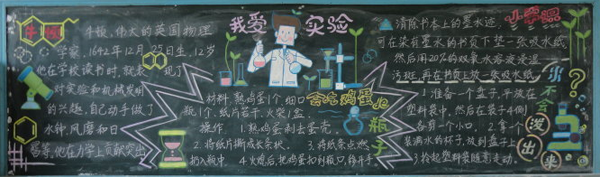 牛顿
牛顿,伟大的英国物理
学家,1642年12月25日生,12岁
他在学校读书时,就表现了
对实验和机械发明
的兴趣,自己动手做了
水钟、风磨和日
晷等,他在力学上贡献突出
我爱实验
会吃鸡蛋的瓶子
材料:熟鸡蛋1个,细口
瓶1个,纸片若干,火柴1盒
操作:1.熟鸡蛋剥去蛋壳。
2.将纸片撕成长条状。3.将纸条点燃
扔入瓶中。4.火熄后,把鸡蛋扣到瓶口,移开手。
小实验
清除书本上的墨水迹
可在染有墨水的书页下垫一张吸水纸,
然后用20%的双氧水溶液浸湿
污斑,再在书页上放一张吸水纸
水不会泼出来
1.准备一个盘子,平放在
塑料袋中,然后在袋子4侧
各剪一个小口。2.拿1个
装满水的杯子,放到盘子上
3.拎起塑料袋随意走动。